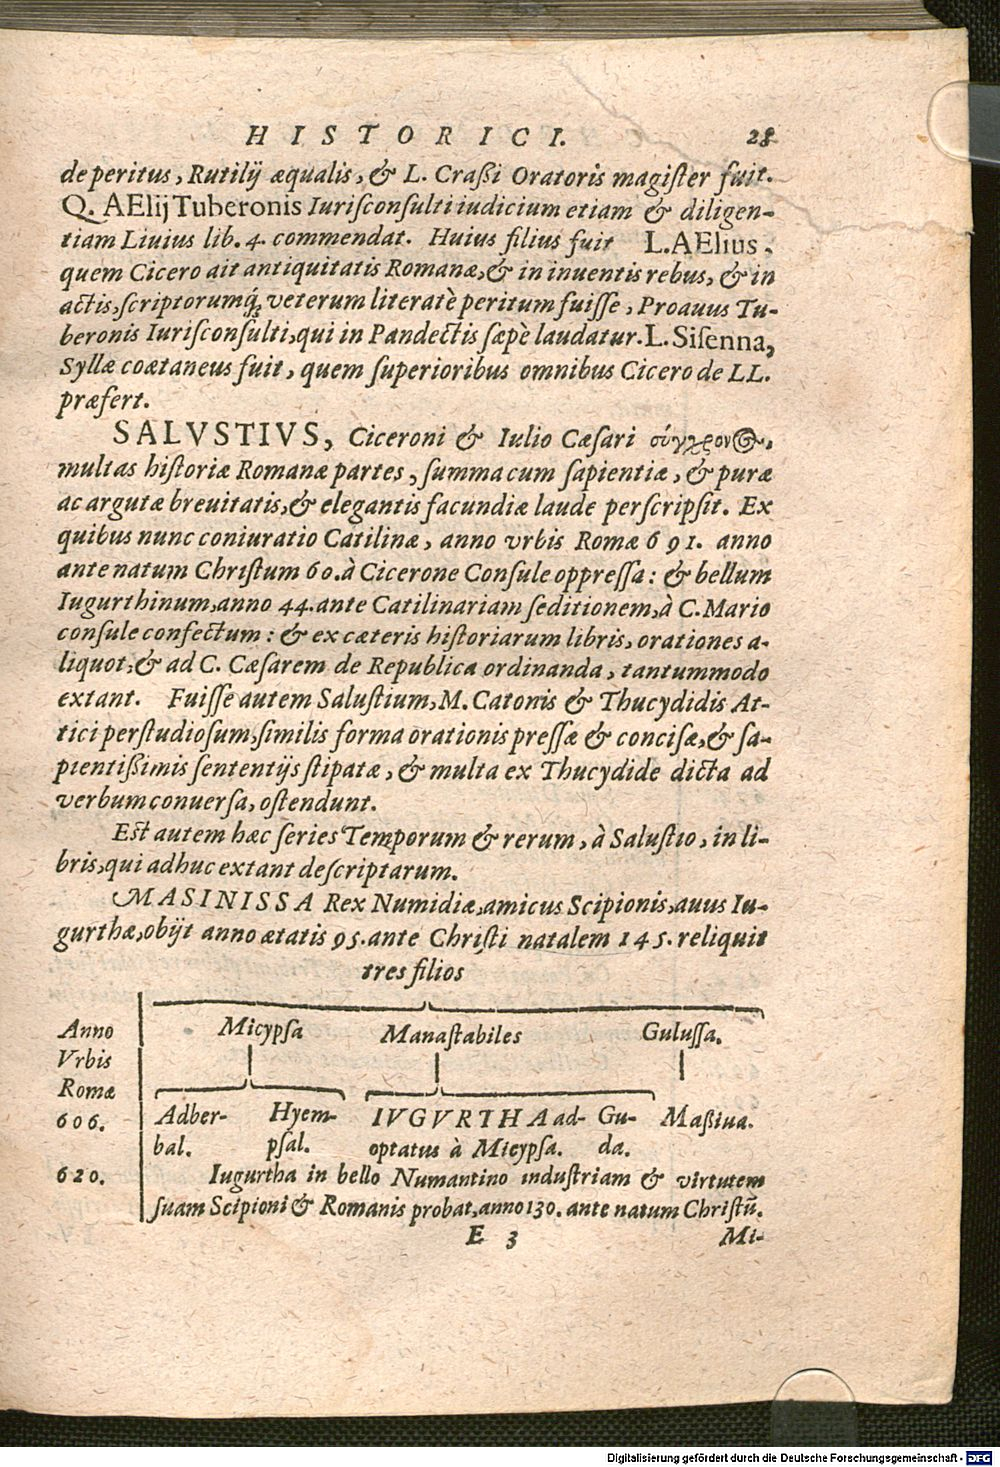 HISTORICI. 28
de peritus, Rutilij æqualis, & L. Craßi Oratoris magiſter fuit.
Q. AElij Tuberonis Iuriſconſulti iudicium etiam & diligen-
tiam Liuius lib. 4. commendat. Huius filius fuit L. AElius,
quem Cicero ait antiquitatis Romanæ, & in inuentis rebus, & in
actis, ſcriptorumq́; veterum literatè peritum fuiſſe, Proauus Tu-
beronis Iuriſconſulti, qui in Pandectis ſæpè laudatur. L. Siſenna,
Syllæ coætaneus fuit, quem ſuperioribus omnibus Cicero de LL.
præfert.
SALVSTIVS, Ciceroni & Iulio Cæſari σύγχρονος,
multas hiſtoriæ Romanæ partes, ſumma cum ſapientiæ, & puræ
ac argutæ breuitatis, & elegantis facundiæ laude perſcripſit. Ex
quibus nunc coniuratio Catilinæ, anno vrbis Romæ 691. anno
ante natum Chriſtum 60. à Cicerone Conſule oppreſſa: & bellum
Iugurthinum, anno 44. ante Catilinariam ſeditionem, à C. Mario
conſule confectum: & ex cæteris hiſtoriarum libris, orationes a-
liquot, & ad C. Cæſarem de Republica ordinanda, tantummodo
extant. Fuiſſe autem Saluſtium, M. Catonis & Thucydidis At-
tici perſtudioſum, ſimilis forma orationis preſſæ & conciſæ, & ſa-
pientißimis ſententijs ſtipatæ, & multa ex Thucydide dicta ad
verbum conuerſa, oſtendunt.
Eſt autem hæc ſeries Temporum & rerum, à Saluſtio, in li-
bris, qui adhuc extant deſcriptarum.
MASINISSA Rex Numidiæ, amicus Scipionis, auus Iu-
gurthæ, obijt anno ætatis 95. ante Chriſti natalem 145. reliquit
tres filios
Anno Micypſa Manaſtabiles Guluſſa.
Vrbis
Romæ
606. Adber- Hyem- IVGVRTHA ad- Gu- Maßiua.
bal. pſal. optatus à Micypſa. da.
620. Iugurtha in bello Numantino induſtriam & virtutem
ſuam Scipioni & Romanis probat, anno 130. ante natum Chriſtū.
E 3 Mi-
Digitalisierung gefördert durch die Deutsche Forschungsgemeinschaft - DFG